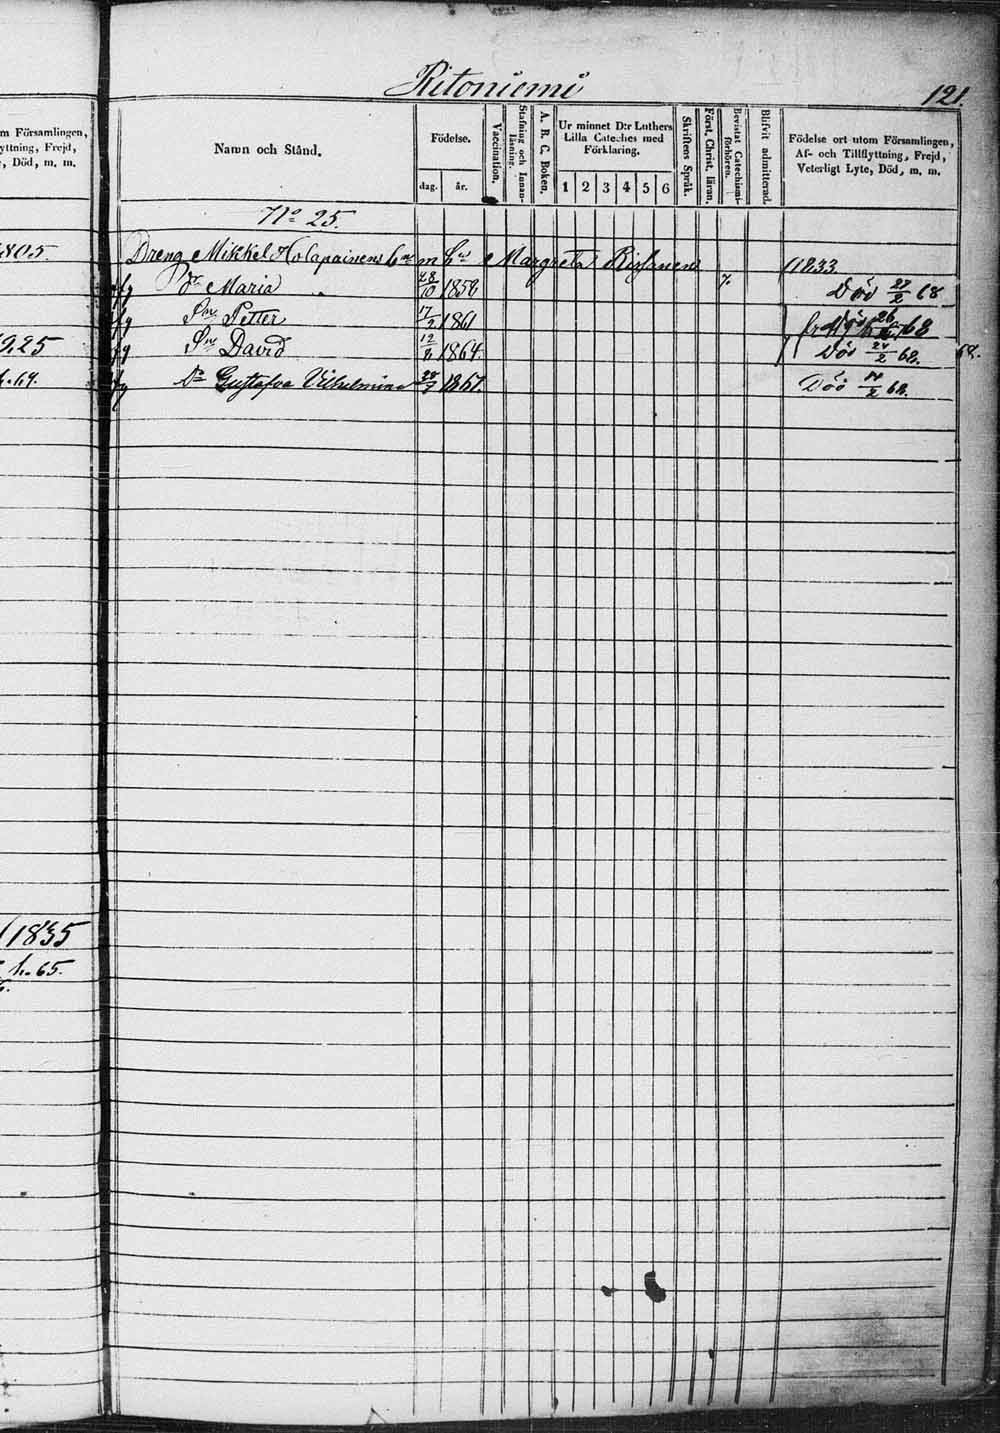 Ritoniemi
121.
m Församlingen,
yttning, Frejd,
, Död, m. m.
Namn och Stånd.
Födelse.
dag. år.
Vaccination.
Stafning och Innan-läsning.
A. B. C. Boken.
Ur minnet D:r Luthers
Lilla Cateches med
Förklaring.
1 2 3 4 5 6
Skriftens Språk.
Först. Christ. läran.
Bevistat Catechismi-förhören.
Blifvit admitterad.
Födelse ort utom Församlingen,
Af- och Tillflyttning, Frejd,
Veterligt Lyte, Död, m. m.
No 25.
1805.
Dreng Mikkel Holapainens Margreta 1833
Dr Maria 28/10 1858 7. Död 27/2 68
Sn Petter 17/2 1861 26 68
925
Sn David 12 1864. Död 24/2 68. 68.
h.64.
Dr Gustafva Vilhelmina 28/7 1867. Död 2 68.
1835
h.65.